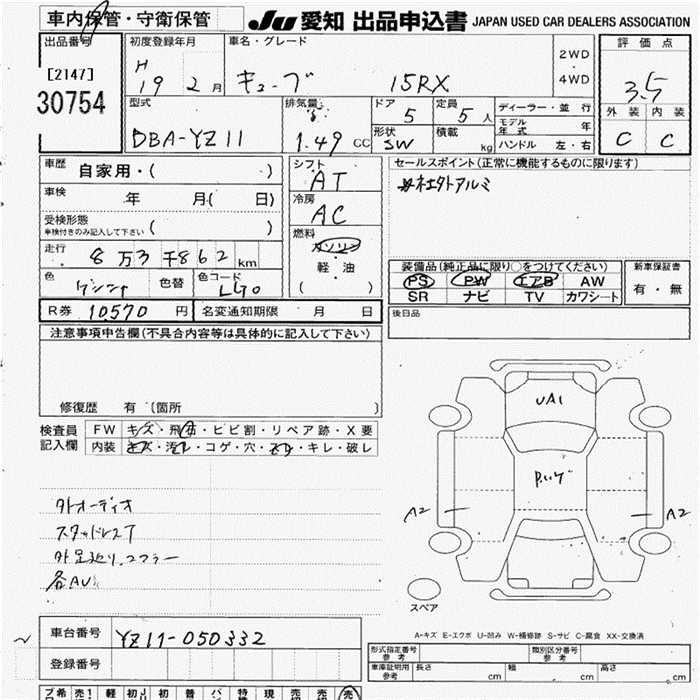 車内保管・守衛保管
JU 愛知 出品申込書 JAPAN USED CAR DEALERS ASSOCIATION
出品番号
[2147]
30754
初度登録年月
H
19 2 月
車名・グレード
キューブ 15RX
2WD
・
4WD
評価点
3.5
外装 内装
C C
型式
DBA-YZ11
排気量
1.49 CC
ドア
5
定員
5 人
形状
SW
積載
kg
ディーラー・並行
モデル年式 年
ハンドル 左・右
車歴 自家用・( )
車検 年 月( 日)
受検形態
車検付きのみ記入して下さい ( )
走行
8 万 3 千 862 km
色
色替
色コード
シフト
AT
冷房
AC
燃料
ガソリン
軽・油
( )
セールスポイント(正常に機能するものに限ります)
装備品(純正品に限り○をつけてください)
PS PW エアB AW
SR ナビ TV カワシート
新車保証書
有・無
R券 10570 円
名変通知期限 月 日
後日品
注意事項申告欄(不具合内容等は具体的に記入して下さい)
修復歴 有 (箇所 )
検査員
記入欄
FW キズ・飛石・ヒビ割・リペア跡・X要
内装 キズ・汚レ・コゲ・穴・スレ・キレ・破レ
外オーディオ
スタッドレスT
各AU
UA1
A2
A2
スペア
A-キズ E-エクボ U-凹み W-補修跡 S-サビ C-腐食 XX-交換済
車台番号 YZ11-050332
登録番号
形式指定番号
参考
類別区分番号
参考
車庫証明用
参考
長さ cm
幅 cm
高さ cm